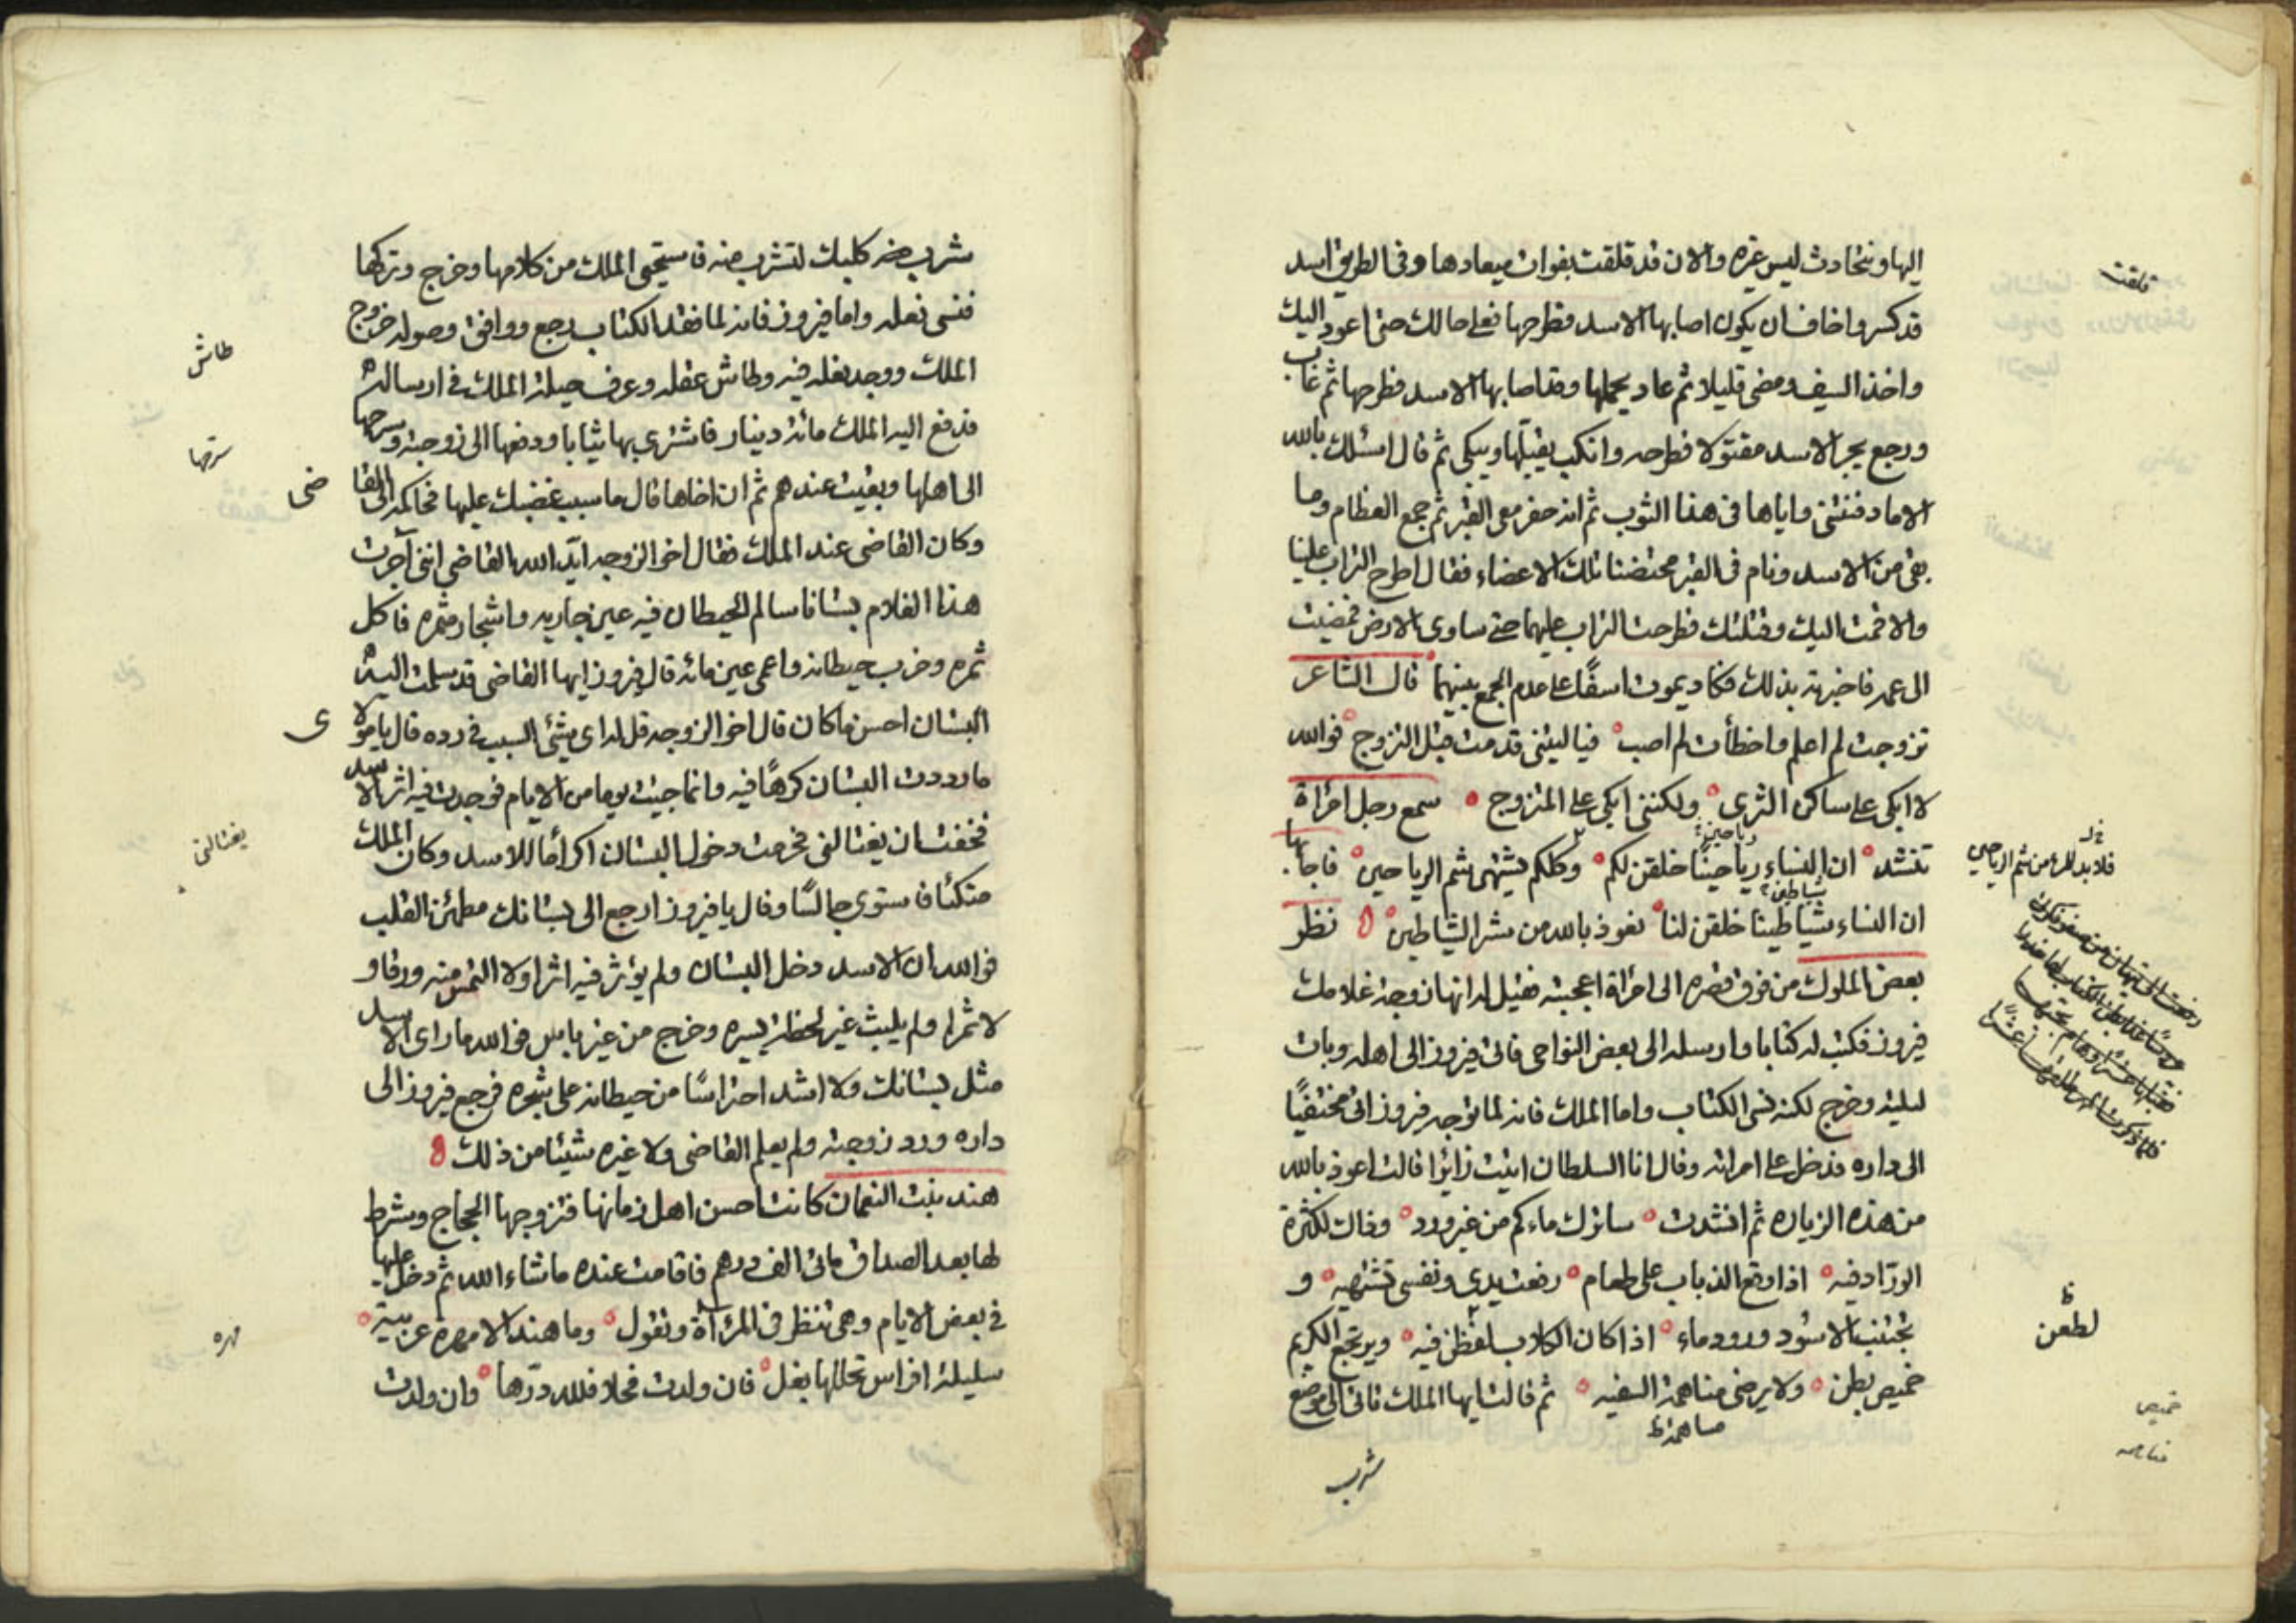 اليها ونتحادث ليس غيره والان قد قلقت بفوات ميعادها وفى الطريق اسد
قد كسر واخاف ان يكون اصابها الاسد فطرحها فعلى حالك حتى اعود اليك
واخذ السيف ومضى قليلا ثم عاد يحملها وقد اصابها الاسد فطرحها ثم غاب
ورجع يجر الاسد مقتولا فطرحه وانكب يقبلها ويبكى ثم قال اسئلك بالله
الا ما دفنتنى واياها فى هذا الثوب ثم انه حفر معى القبر ثم جمع العظام وما
بقى من الاسد ونام فى القبر محتضنا تلك الاعضاء فقال اطرح التراب علينا
والا قمت اليك وقتلتك فطرحت التراب عليهما حتى ساوى الارض فمضيت
الى عمه فاخبرته بذلك فكاد يموت اسفًا على عدم الجمع بينهما قال الشاعر
تزوجت لم اعلم واخطأت لم اصب فيا ليتنى قد مت قبل التزوج فوالله
لا ابكى على ساكن الثرى ولكننى ابكى على المتزوج سمع رجل امراة
تنشد ان النساء رياحينًا خلقن لكم وكلكم يشتهى شم الرياحين فاجابها
رياحين
ان النساء شياطينا خلقن لنا نعوذ بالله من شر الشياطين نظر
شياطين
بعض الملوك من فوق قصره الى امراة اعجبته فقيل له انها زوجة غلامك
فيروز فكتب له كتابا وارسله الى بعض النواحى فاتى فيروز الى اهله وبات
ليلته وخرج لكنه نسى الكتاب واما الملك فانه لما توجه فيروز اتى مختفيًا
الى داره فدخل على امراته وقال انا السلطان اتيت زائرا قالت اعوذ بالله
من هذه الزياره ثم انشدت ساترك ماءكم من غير ورد وذاك لكثرة
الورّاد فيه اذا وقع الذباب على طعام رفعت يدى ونفسى تشتهيه و
تجتنب الاسُود ورود ماء اذا كان الكلاب لعظن فيه ويرتجع الكريم
خميص بطن ولا يرضى مناهمة السفيه ثم قالت ايها الملك تاتى الى موضع
مساهمة ظ
شرب
قلقت
فلا بد للمرء من شم الرياحين
ظ
لطعن
خميص
شرب منه كلبك لتشرب منه فاستحيى الملك من كلامها وخرج وتركها
فنسى نعله واما فيروز فانه لما فقد الكتاب رجع ووافق وصوله خروج
الملك ووجد نعله فيه وطاش عقله وعرف حيلة الملك فى ارساله
فدفع اليه الملك مائة دينار فاشترى بها ثيابا ودفعها الى زوجته وسرحها
الى اهلها وبقيت عندهم ثم ان اخاها قال ما سبب غضبك عليها فحاكمه الى القا ضى
وكان القاضى عند الملك فقال اخو الزوجه ايّد الله القاضى اننى آجرت
هذا الغلام بستانا سالم الحيطان فيه عين جاريه واشجار مثمره فاكل
ثمره وخرب حيطانه واعمى عين مائه قال فيروز ايها القاضى قد سلمت اليه
البستان احسن ما كان قال اخو الزوجه قل له اى شئ السبب فى رده قال يا مولا ى
ما رددت البستان كرهًا فيه وانما جئت يوما من الايام فوجدت فيه اثر الاسد
فخفت ان يغتالنى فحرمت دخول البستان اكرامًا للاسد وكان الملك
متكئا فاستوى جالسًا وقال يا فيروز ارجع الى بستانك مطمئن القلب
فوالله ان الاسد دخل البستان ولم يؤثر فيه اثرا ولا التمس منه ورقا و
لا ثمرا ولم يلبث غير لحظة يسيره وخرج من غير باس فوالله ما راى الاسد
مثل بستانك ولا اشد احتراسًا من حيطانه على شجره فرجع فيروز الى
داره ورد زوجته ولم يعلم القاضى ولا غيره شيئا من ذلك
هند بنت النعمان كانت احسن اهل زمانها فتزوجها الحجاج وشرط
لها بعد الصداق مائى الف درهم فاقامت عنده ما شاء الله ثم دخل عليها
فى بعض الايام وهى تنظر فى المرآة وتقول وما هند الا مهره عربية
سليلة افراس تحللها بغل فان ولدت فحلا فلله درّها وان ولدت
طاش
سرحها
يغتالنى
مهره